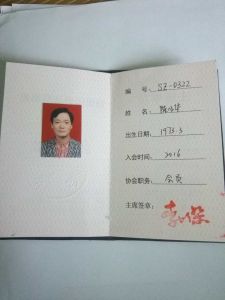 编 号： SZ-0322
姓 名：
出生日期： 1973.3
入会时间： 2016
协会职务： 会员
主席签章：